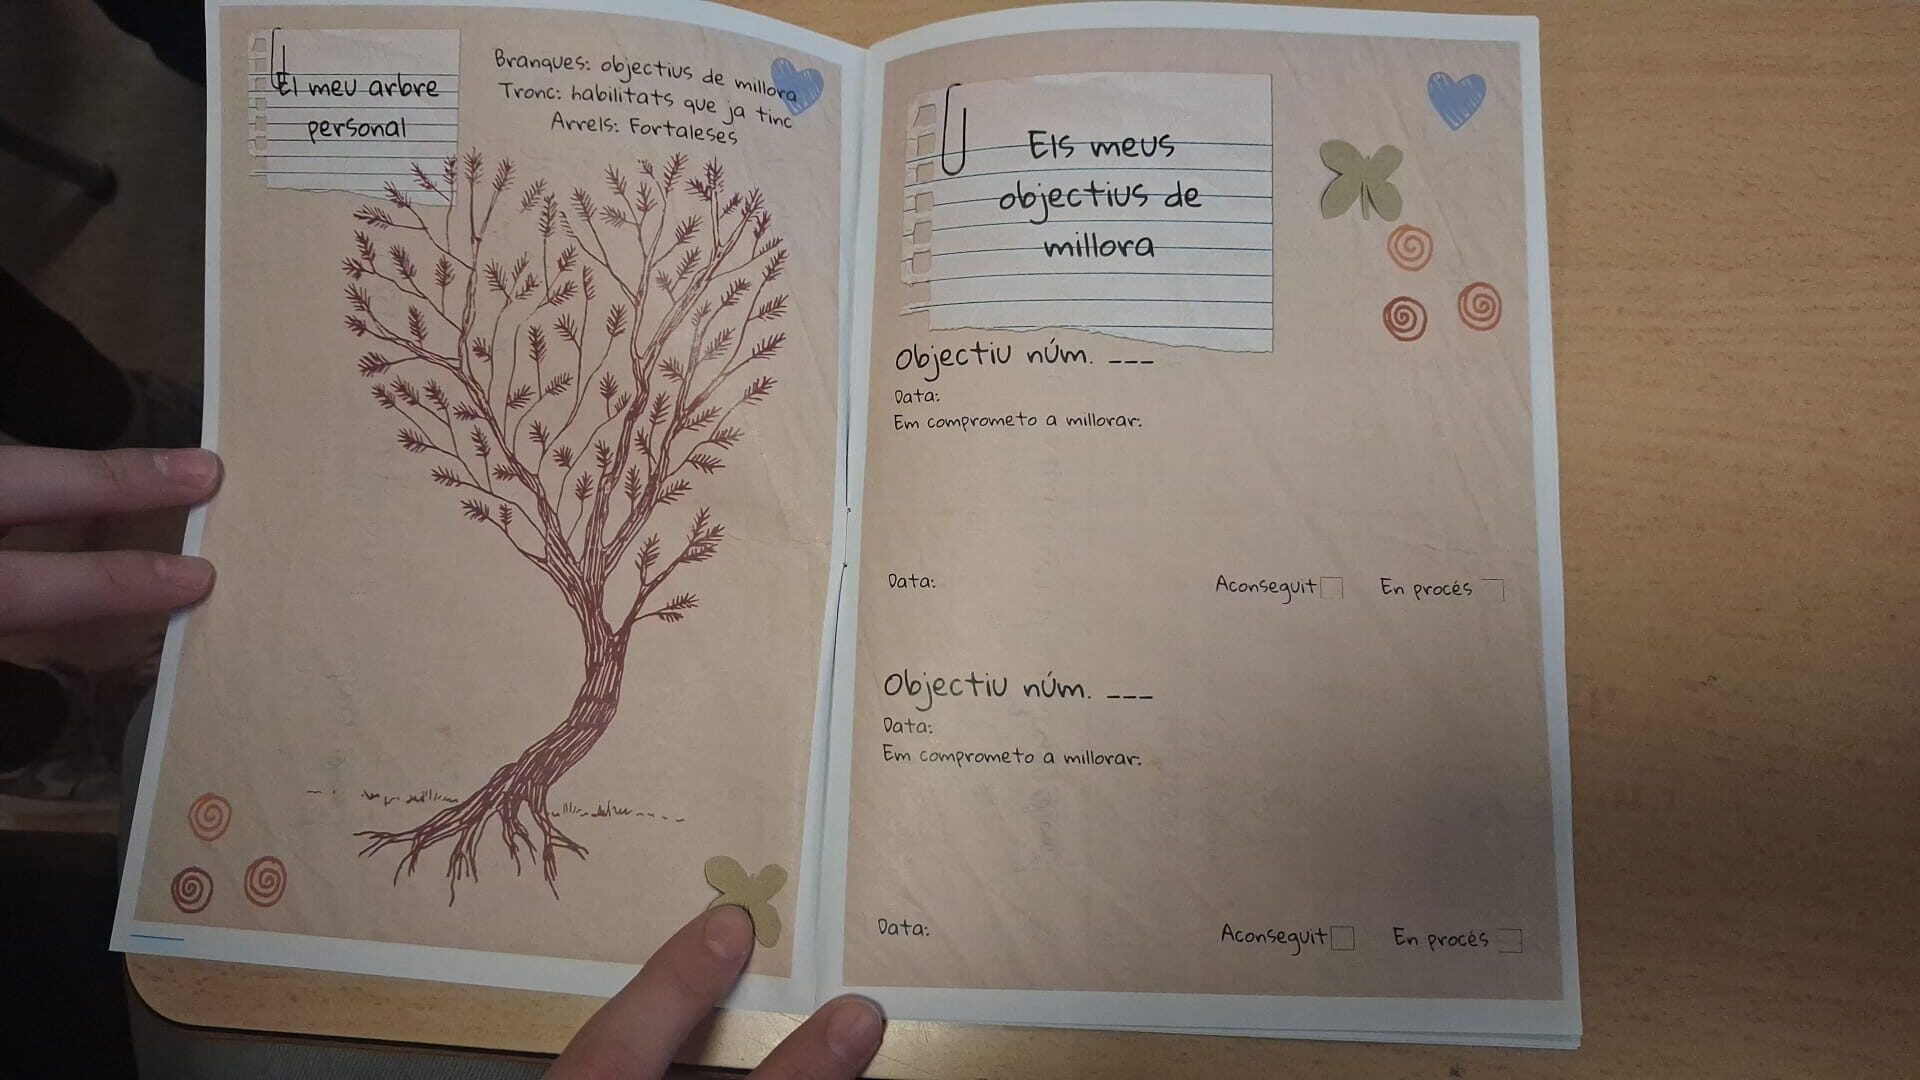 El meu arbre
personal
Branques: objectius de millora
Tronc: habilitats que ja tinc
Arrels: Fortaleses
Els meus
objectius de
millora
Objectiu núm. ___
Data:
Em comprometo a millorar:
Data:
Aconseguit
En procés
Objectiu núm. ___
Data:
Em comprometo a millorar:
Data:
Aconseguit
En procés